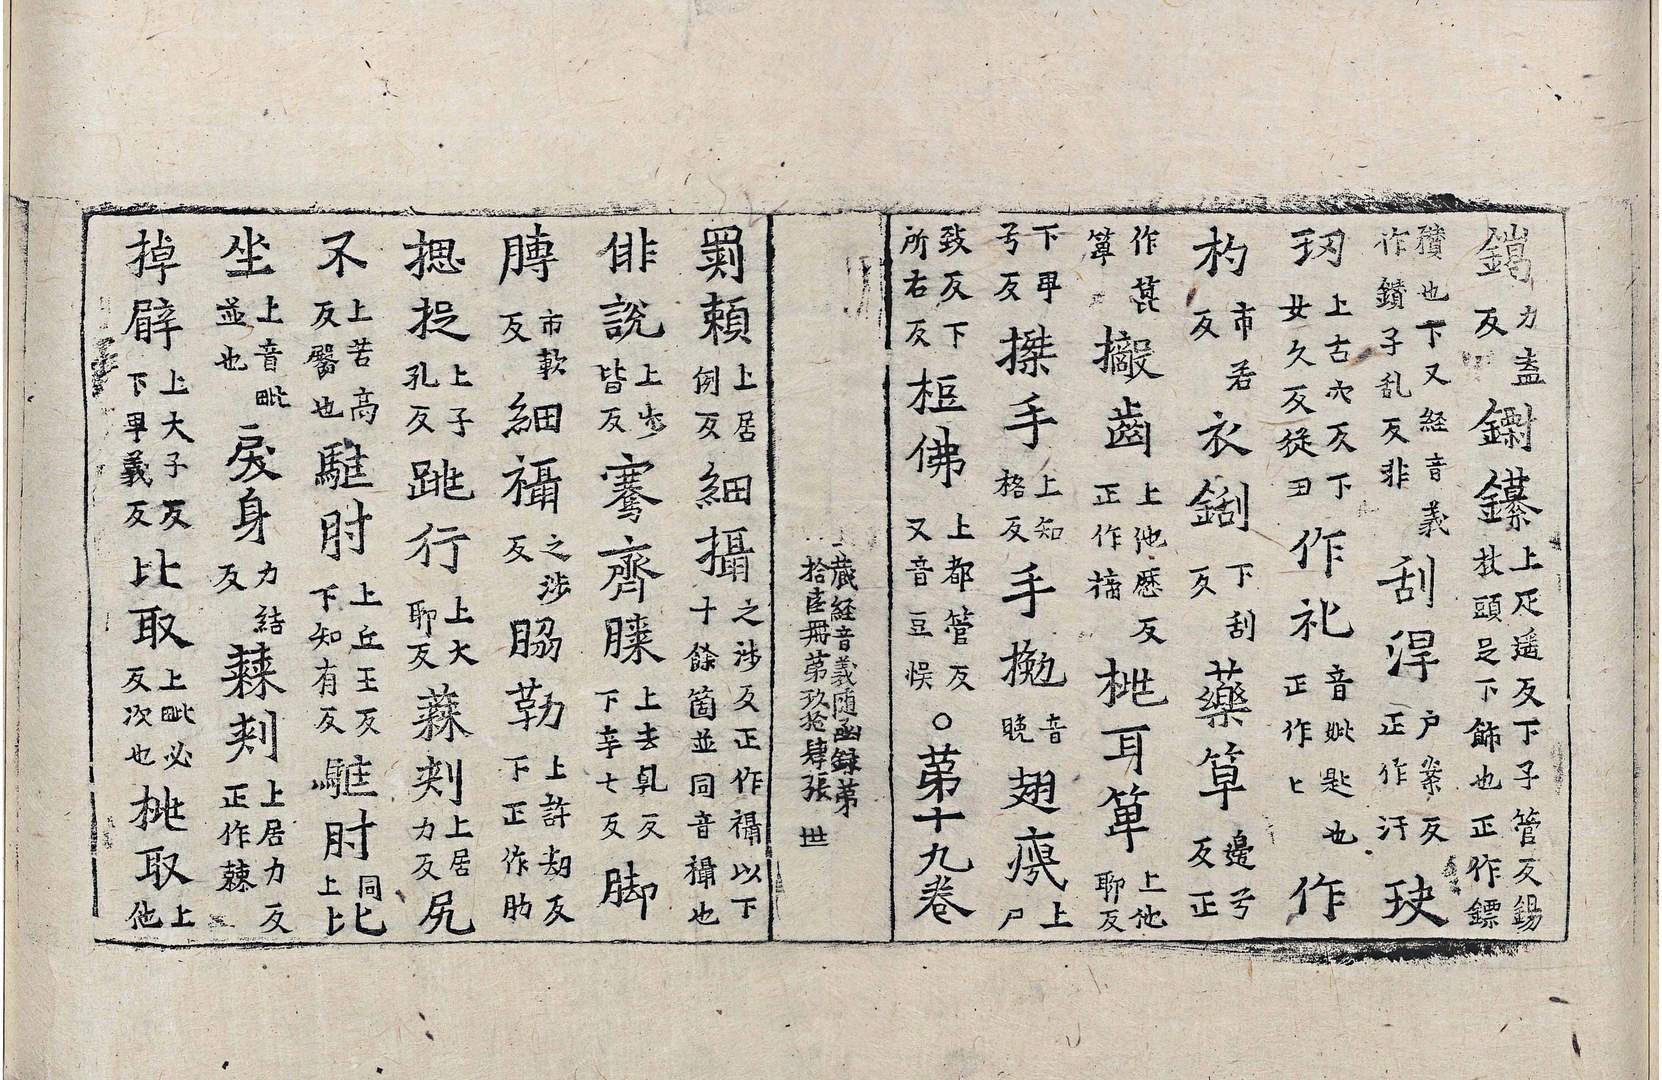 鎑力盍反鏩鑤上疋遥反下子管反錫杖頭足下飾也正作鏢
䂎也下又経音義作鑚子乱反非刮浫户案反正作汗玦
㺲上古穴反下女久反從丑作礼音妣匙也正作匕作
杓市若反衣𨧱下刮反藥箄邊兮反正
作萆箄擨齒上他歷反正作擿桃耳箄上他聊反
下卑兮反搩手上知格反手㧾音晚翅㾱上尸
致反下所右反梪佛上都管反又音豆悮〇苐十九卷
藏経音義随函録苐拾陸冊苐玖拾肆張 世
罽賴上居例反細攝之涉反正作襵以下十餘箇並同音襵也
俳說上步皆反騫齊膝上去乹反下辛七反脚
膊市軟反細襵之涉反脇勒上許刼反下正作肋
摠捉上子孔反跳行上大聊反蕀刾上居力反尻
不上苦高反臀也𩢼肘上丘王反下知有反𩢼肘同上比
坐上音毗並也戾身力結反蕀刾上居力反正作棘
掉臂上大子反下卑義反比取上毗必反次也桃取上他